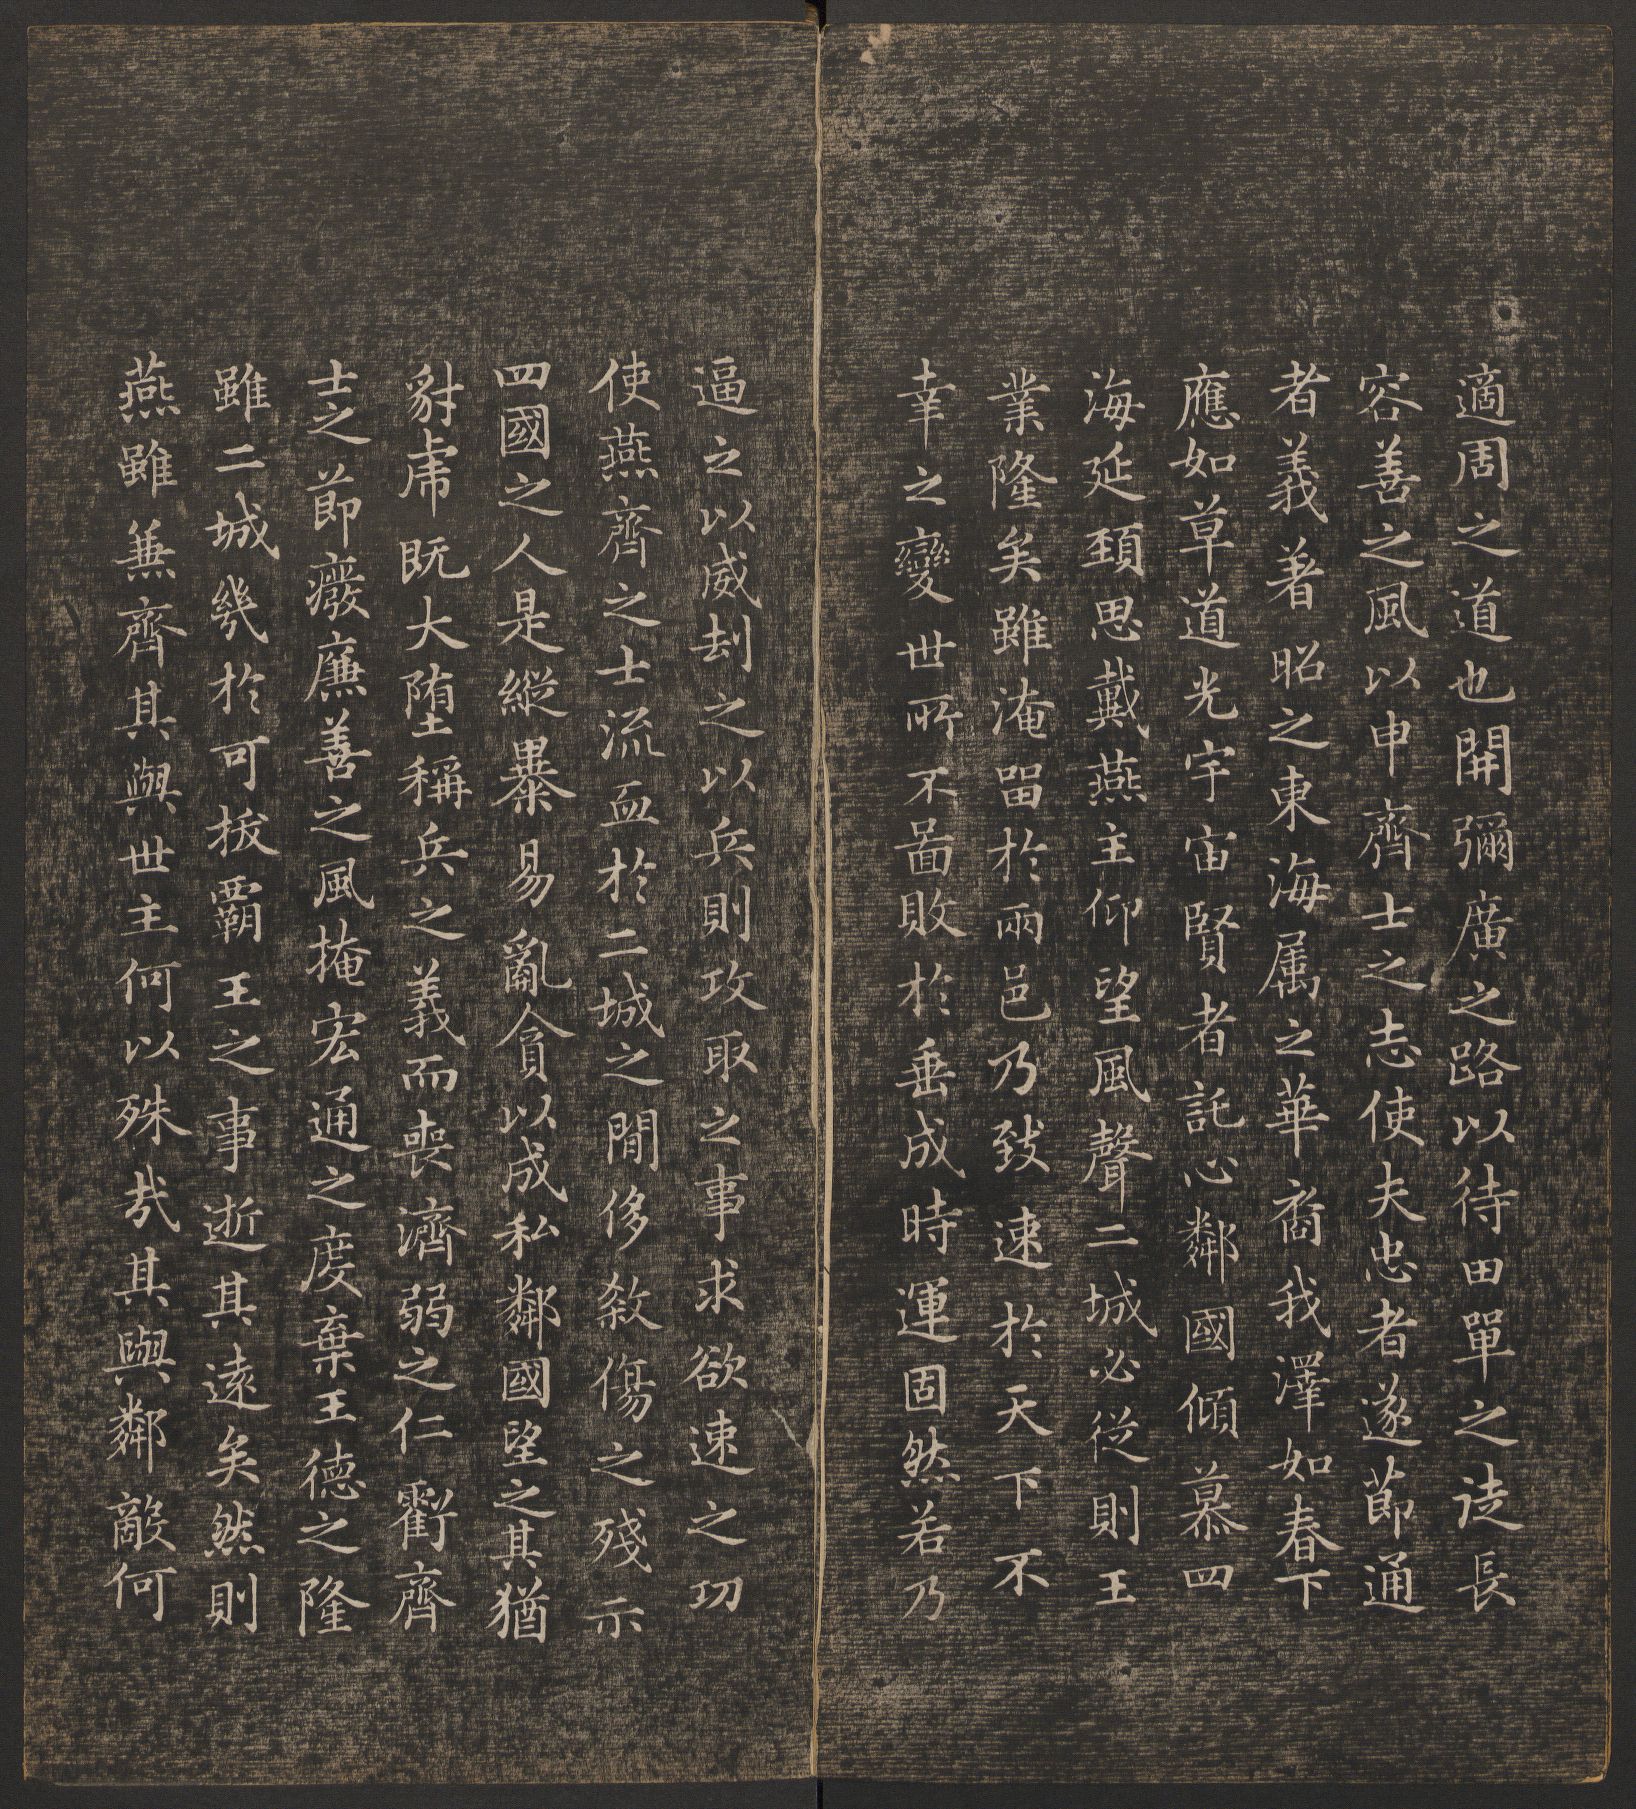 適周之道也開彌廣之路以待田單之徒長
容善之風以申齊士之志使夫忠者遂節通
者義著昭之東海属之華裔我澤如春下
應如草道光宇宙賢者託心鄰國傾慕四
海延頸思戴燕主仰望風聲二城必從則王
業隆矣雖淹留於兩邑乃致速於天下不
幸之變世所不啚敗於垂成時運固然若乃
逼之以威刦之以兵則攻取之事求欲速之功
使燕齊之士流血於二城之間侈煞傷之殘示
四國之人是縱暴易亂貪以成私鄰國望之其猶
豺虎既大墮稱兵之義而喪濟弱之仁虧齊
士之節癈廉善之風掩宏通之度棄王德之隆
雖二城幾於可拔霸王之事逝其遠矣然則
燕雖兼齊其與世主何以殊哉其與鄰敵何